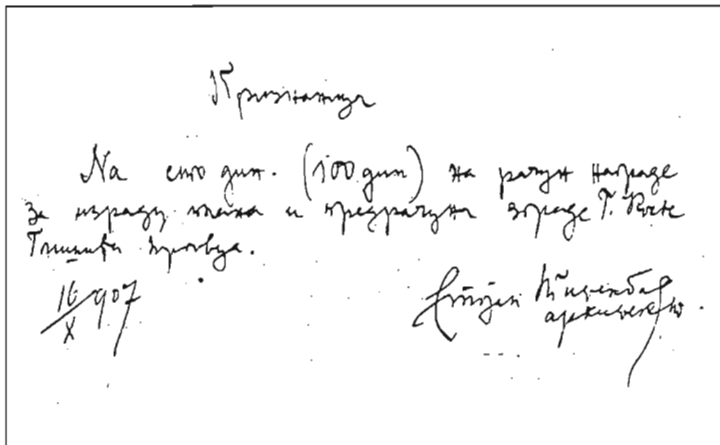 Признаница
На сто дин. (100 дин) на рачун награде
за израду плана и предрачуна зграде Г. Косте
трговца.
16/X 907
Стојан Тителбах
архитекта.